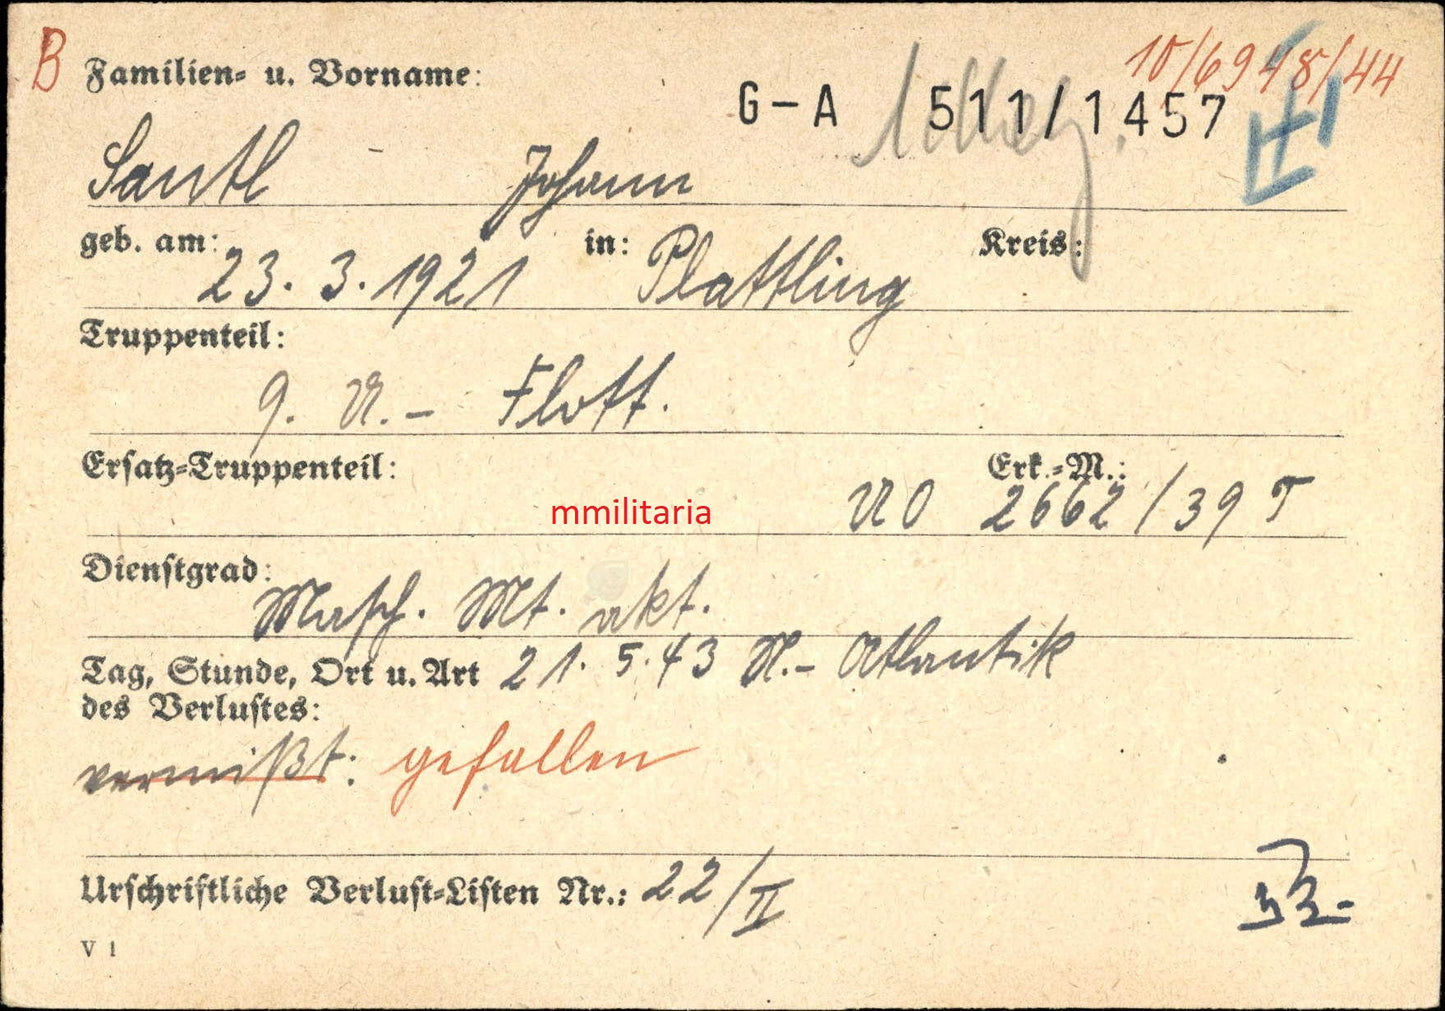 B Familien- u. Vorname: 10/6948/44
G-A 511/1457
Santl Johann
geb. am: 23. 3. 1921 in: Plattling Kreis:
Truppenteil:
9. U.- Flott.
Ersatz-Truppenteil: Erk.-M.:
UO 2662/39 T
mmilitaria
Dienstgrad:
Masch. Mt. akt.
Tag, Stunde, Ort u. Art 21. 5. 43 N.- Atlantik
des Verlustes:
vermißt: gefallen
Urschriftliche Verlust-Listen Nr.: 22/II
V 1